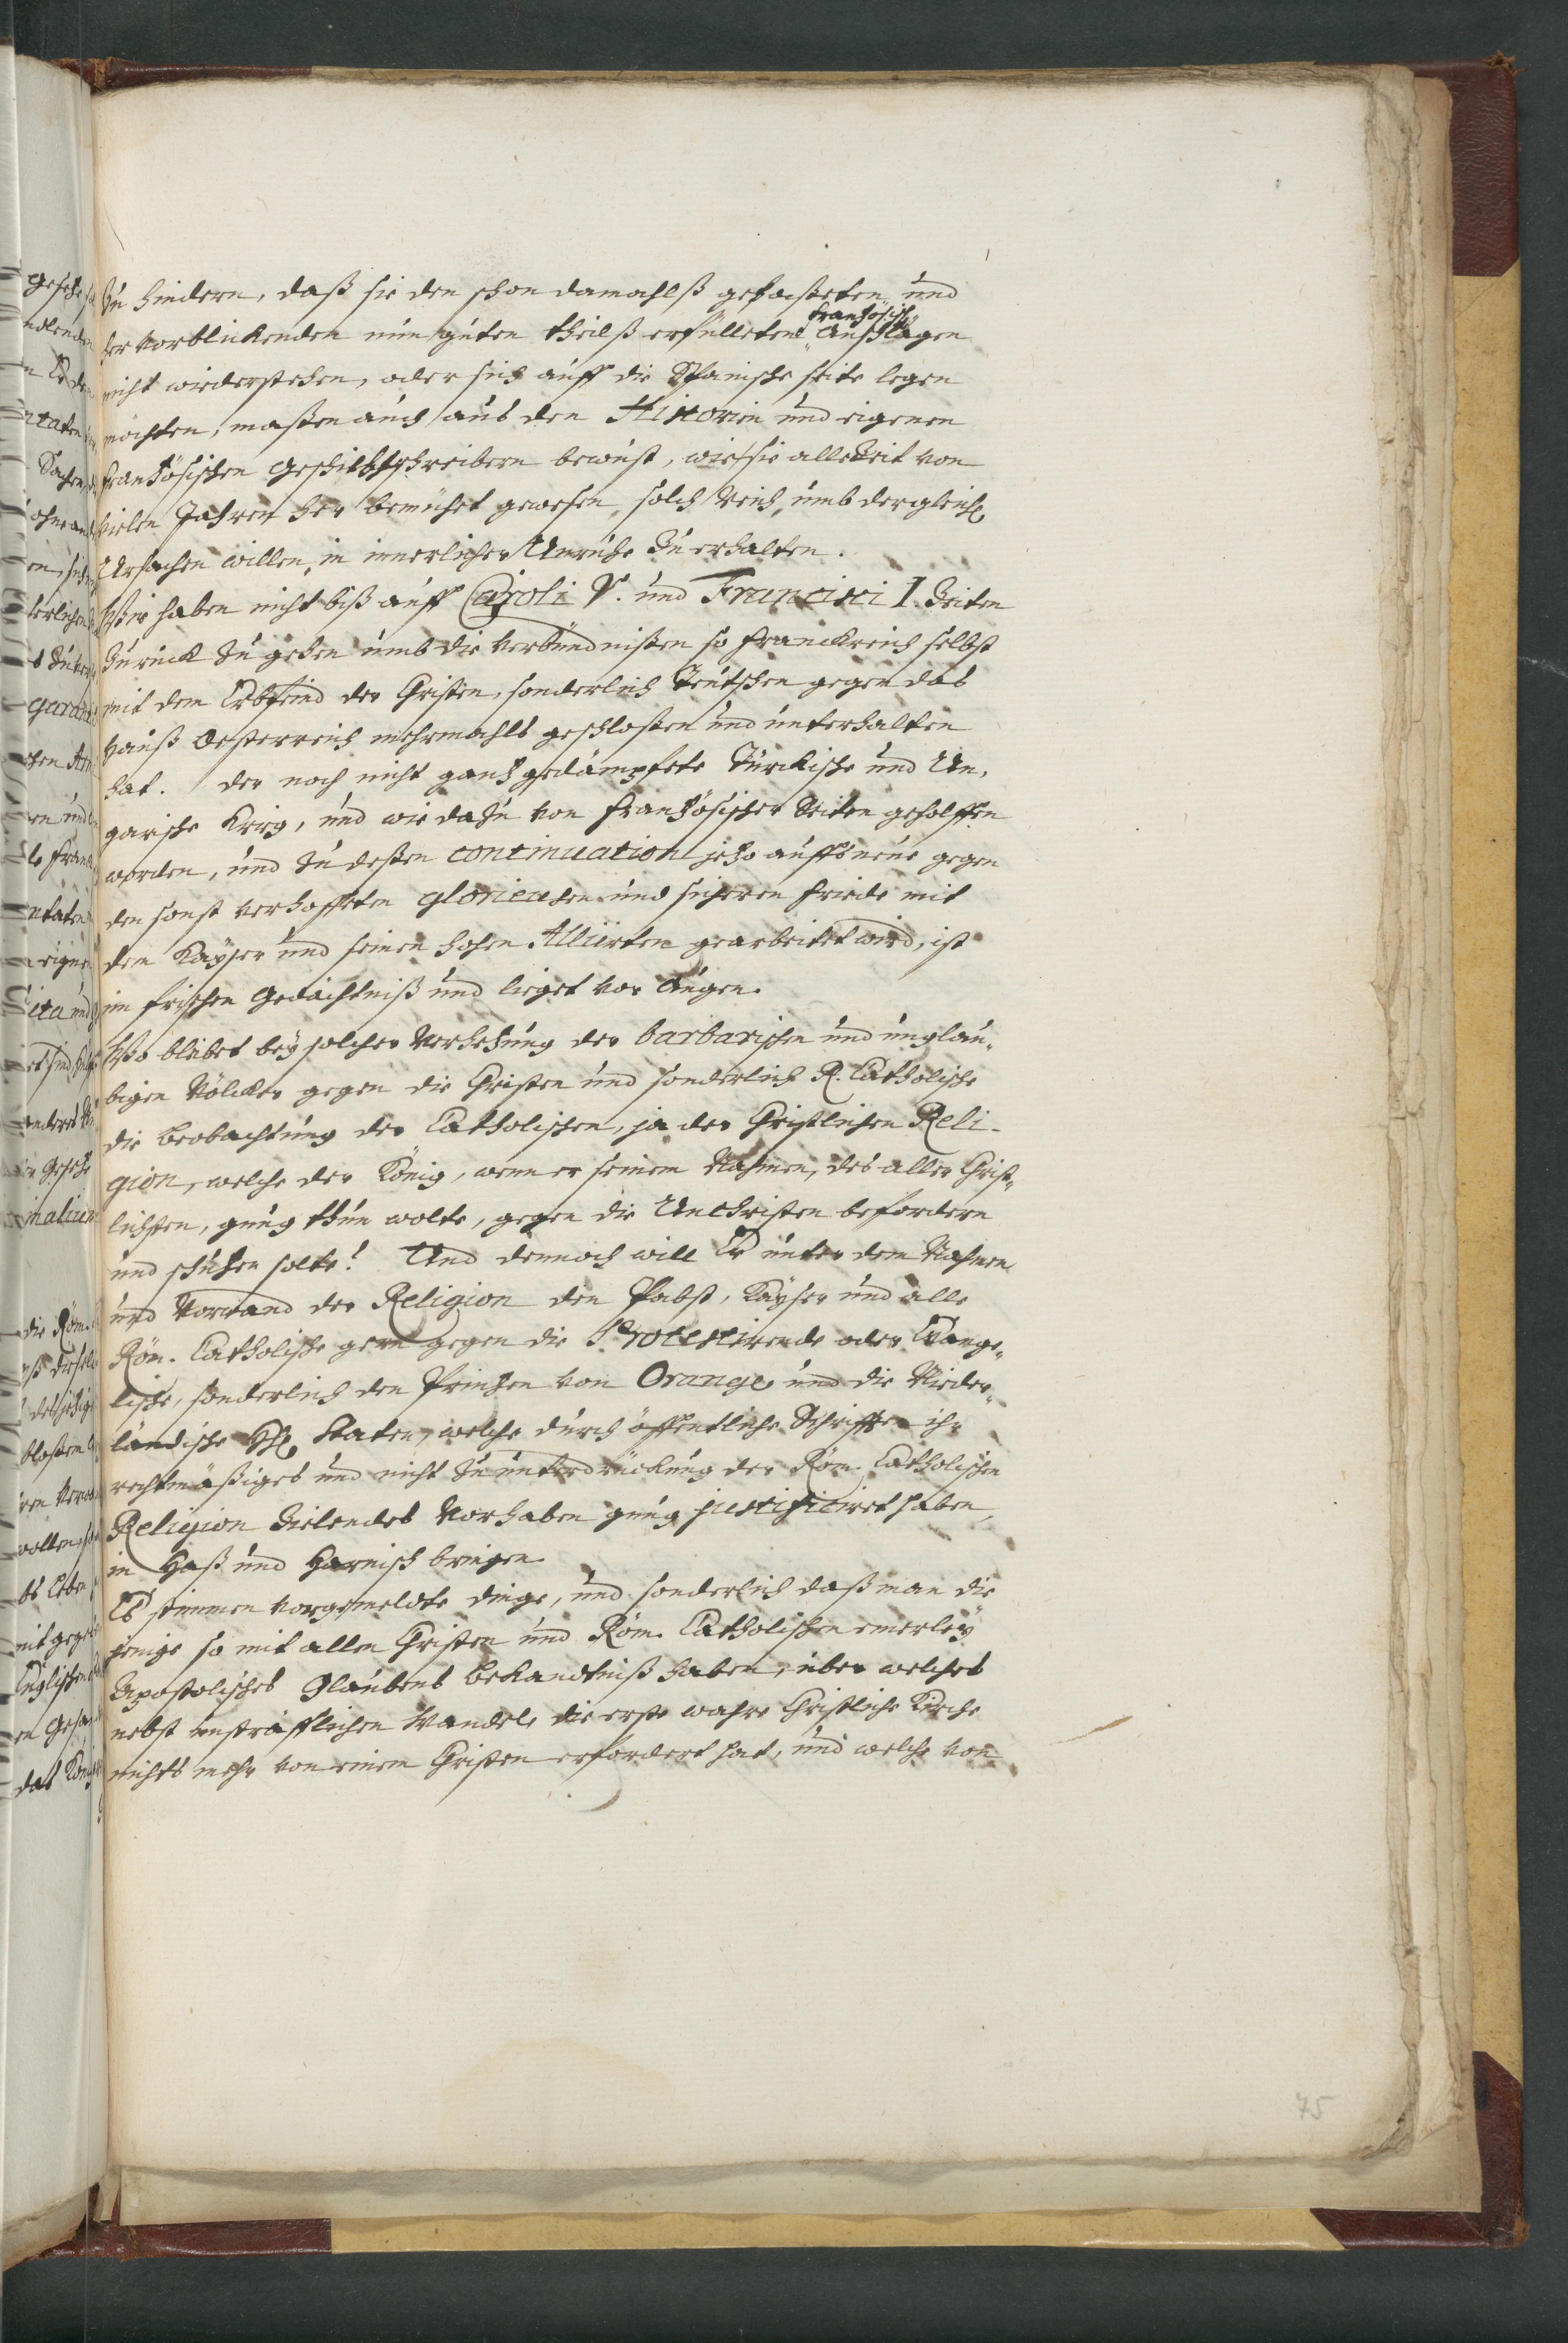 zu hindern, daß sie den schon damahlß gefasseten und
hervorblickenden nun guten theilß erfülleten französisch Anschlägen
nicht wiederstehen, oder sich auff die Spanische seite legen
möchten, maßen auch aus den Historien und eigenen
französischen Geschichtschreibern bewust, wie sie allezeit von
vielen Jahren her bemühet gewesen, solch Reich, umb dergleichen
Ursachen willen, in innerlicher Unruhe zu erhalten.
Wir haben nicht biß auff Caroli V. und Francisci I. Zeiten
zurück zu gehen umb die Verbündnißen so Franckreich selbst
mit dem Erbfeind der Christen, sonderlich Teutschen gegen das
Hauß Oesterreich mehrmahls geschloßen und unterhalten
hat. Der noch nicht gantz gedämpfete Türckische und Un,
garische Krieg, und wie dazu von französischer Seiten geholffen
worden, und zu deßen continuation jetzo auffs neue gegen
den sonst verhofften glorieusen und sicheren Friede mit
dem Käyser und seinen hohen Alliirten gearbeitet wird, ist
im frischen Gedächtniß und lieget vor Augen.
Wo bleibet bey solcher Verhetzung der barbarischen und unglau„
bigen Völcker gegen die Christen und sonderlich R. Catholische
die Beobachtung der Catholischen, ja der Christlichen Reli-
gion, welche der König, wenn er seinem Nahmen, des aller Christ„
lichsten, gnug thun wolte, gegen die Unchristen befordern
und schützen solte! Und dennoch will Er unter dem Nahmen
und Vorwand der Religion den Pabst, Käyser und alle
Röm. Catholische gern gegen die Protestirende oder Evange„
lische, sonderlich den Printzen von Orange und die Nieder„
ländische HH. Staten, welche durch öffentliche Schrifften ihr
rechtmäßiges und nicht zu unterdrückung der Röm. Catholischen
Religion zielendes Vorhaben gnug justificiret haben,
in Haß und Harnisch bringen.
Es stimmen vorgemeldte dinge, und sonderlich daß man die
jenige so mit allen Christen und Röm. Catholischen einerley
Apostolisches Glaubens Bekandtniß haben, über welches
nebst unsträfflichen Wandel, die erste wahre Christliche Kirche
nichts mehr von einem Christen erfordert hat, und welche von
75